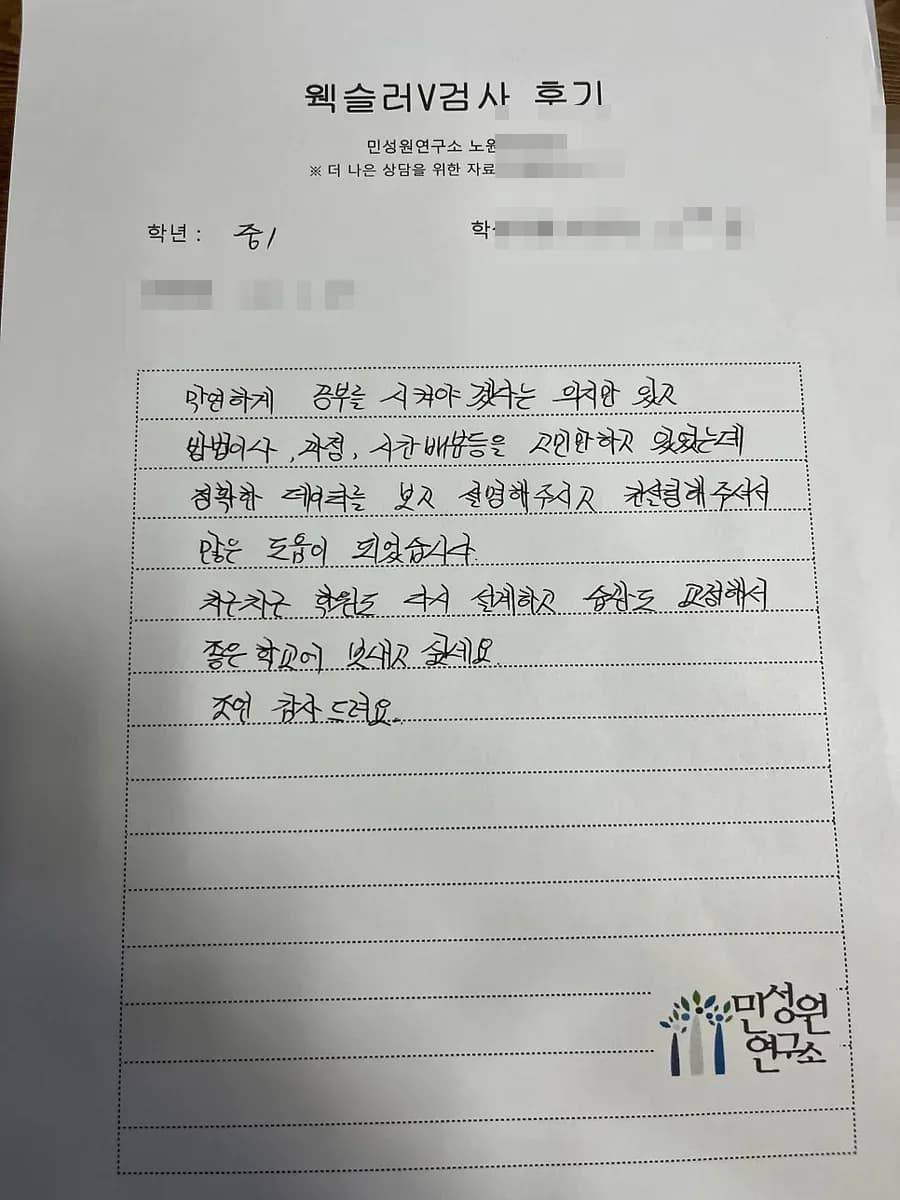 웩슬러V검사 후기
민성원연구소 노원
※ 더 나은 상담을 위한 자료
학년 : 중1
막연하게 공부를 시켜야 겠다는 의지만 있고
방법이나, 과정, 시간배분등을 고민만하고 있었는데
정확한 데이타를 보고 설명해주시고 컨설팅해주셔서
많은 도움이 되었습니다.
차근차근 학원도 다시 설계하고 습관도 교정해서
좋은학교에 보내고 싶네요.
조언 감사 드려요.
민성원
연구소